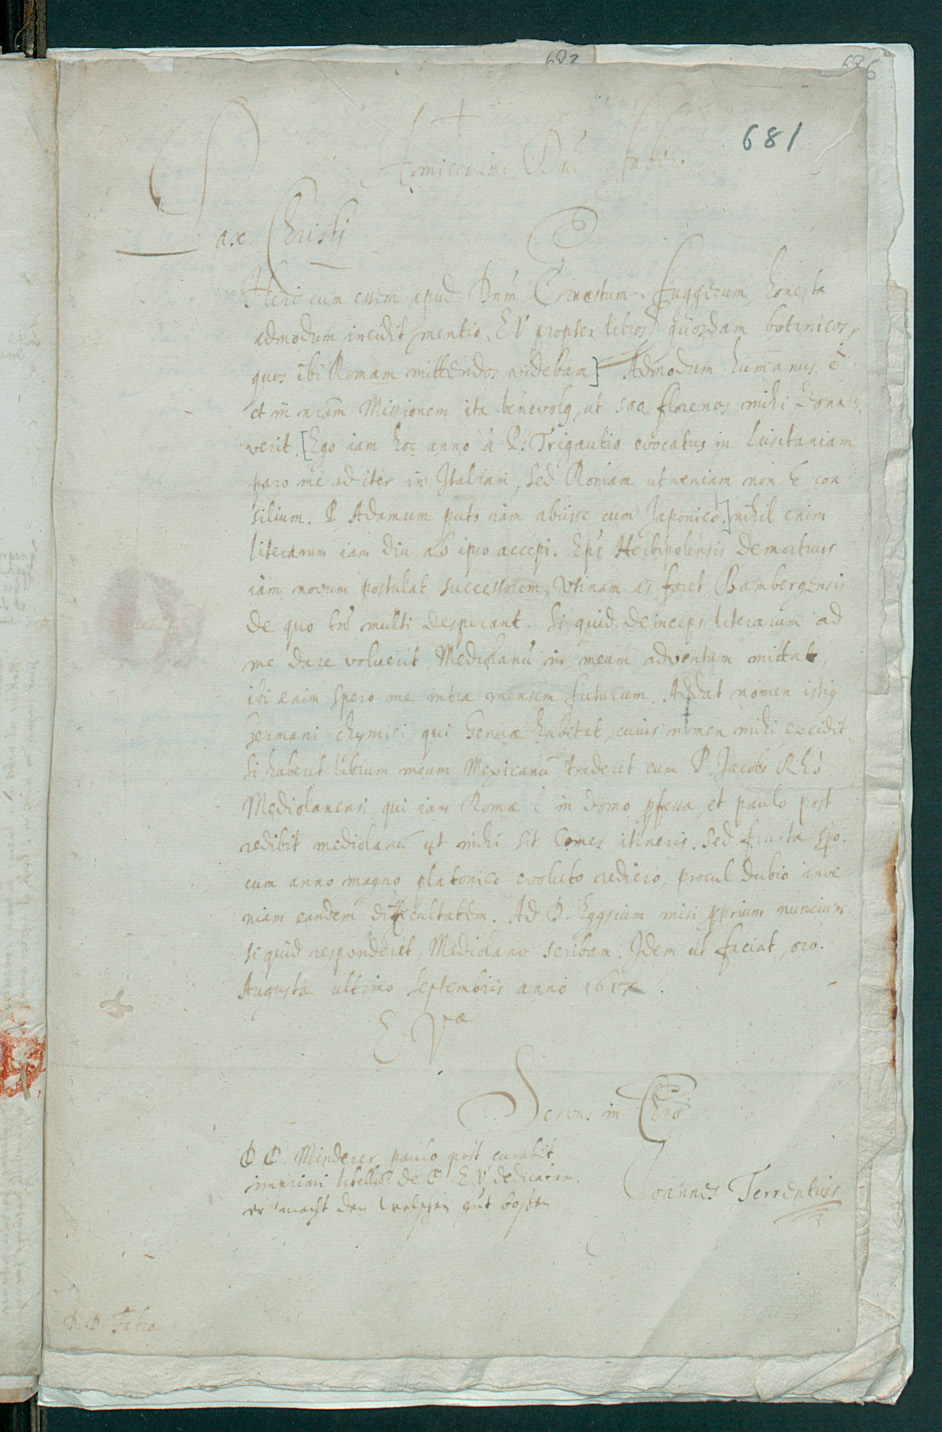 682
686
681
Amicissime Dne Faber.
Pax Christi
Heri cum essem apud Dnm Ernestum Fuggerum, honesta
admodum incidit mentio E V propter libros quosdam botanicos,
quos ibi Romam mittendos videbam] Admodum humanus ē
et in nram Missionem ita benevolg, ut 500 florenos mihi dona-
verit. [Ego iam hoc anno à P. Trigautio evocatus in Lusitaniam
paro me ad iter in Italiam, sed Romam ut veniam non ē con
silium. P Adamum puto iam abiisse cum Japonico,] nihil enim
literarum iam diu ab ipso accepi. Eps Herbipolensis demortuus
iam novum postulat successorem, Utinam is foret Bambergensis
de quo tn multi desperant. Si quid deinceps literarum ad
me dare voluerit, Mediolanū in meum adventum mittat,
ibi enim spero me intra mensem futurum. Addat nomen istig
Germani chymici qui Genuæ habitat, cuius nomen mihi excidit
Si haberet librum meum Mexicanū traderet eum P. Jacobo Rhò
Mediolanensi, qui iam Romæ ē in domo pfessa, et paulo post
redibit mediolanū ut mihi sit Comes itineris. Sed frustra spo.
cum anno magno platonico evoluto rediero, procul dubio inve
niam eandem difficultatem. Ad D. Eggsium misi pprium nuncium
si quid responderit, Mediolano scribam. Idem ut faciat, oro.
Augusta ultimo Septembris anno 1617.
E Væ
Servus in Chro
Joannes Terrentius
D D. Minderer paulo post curabit
imprimi libellū de E V dedicatum.
er macht den
D. D. Fabro